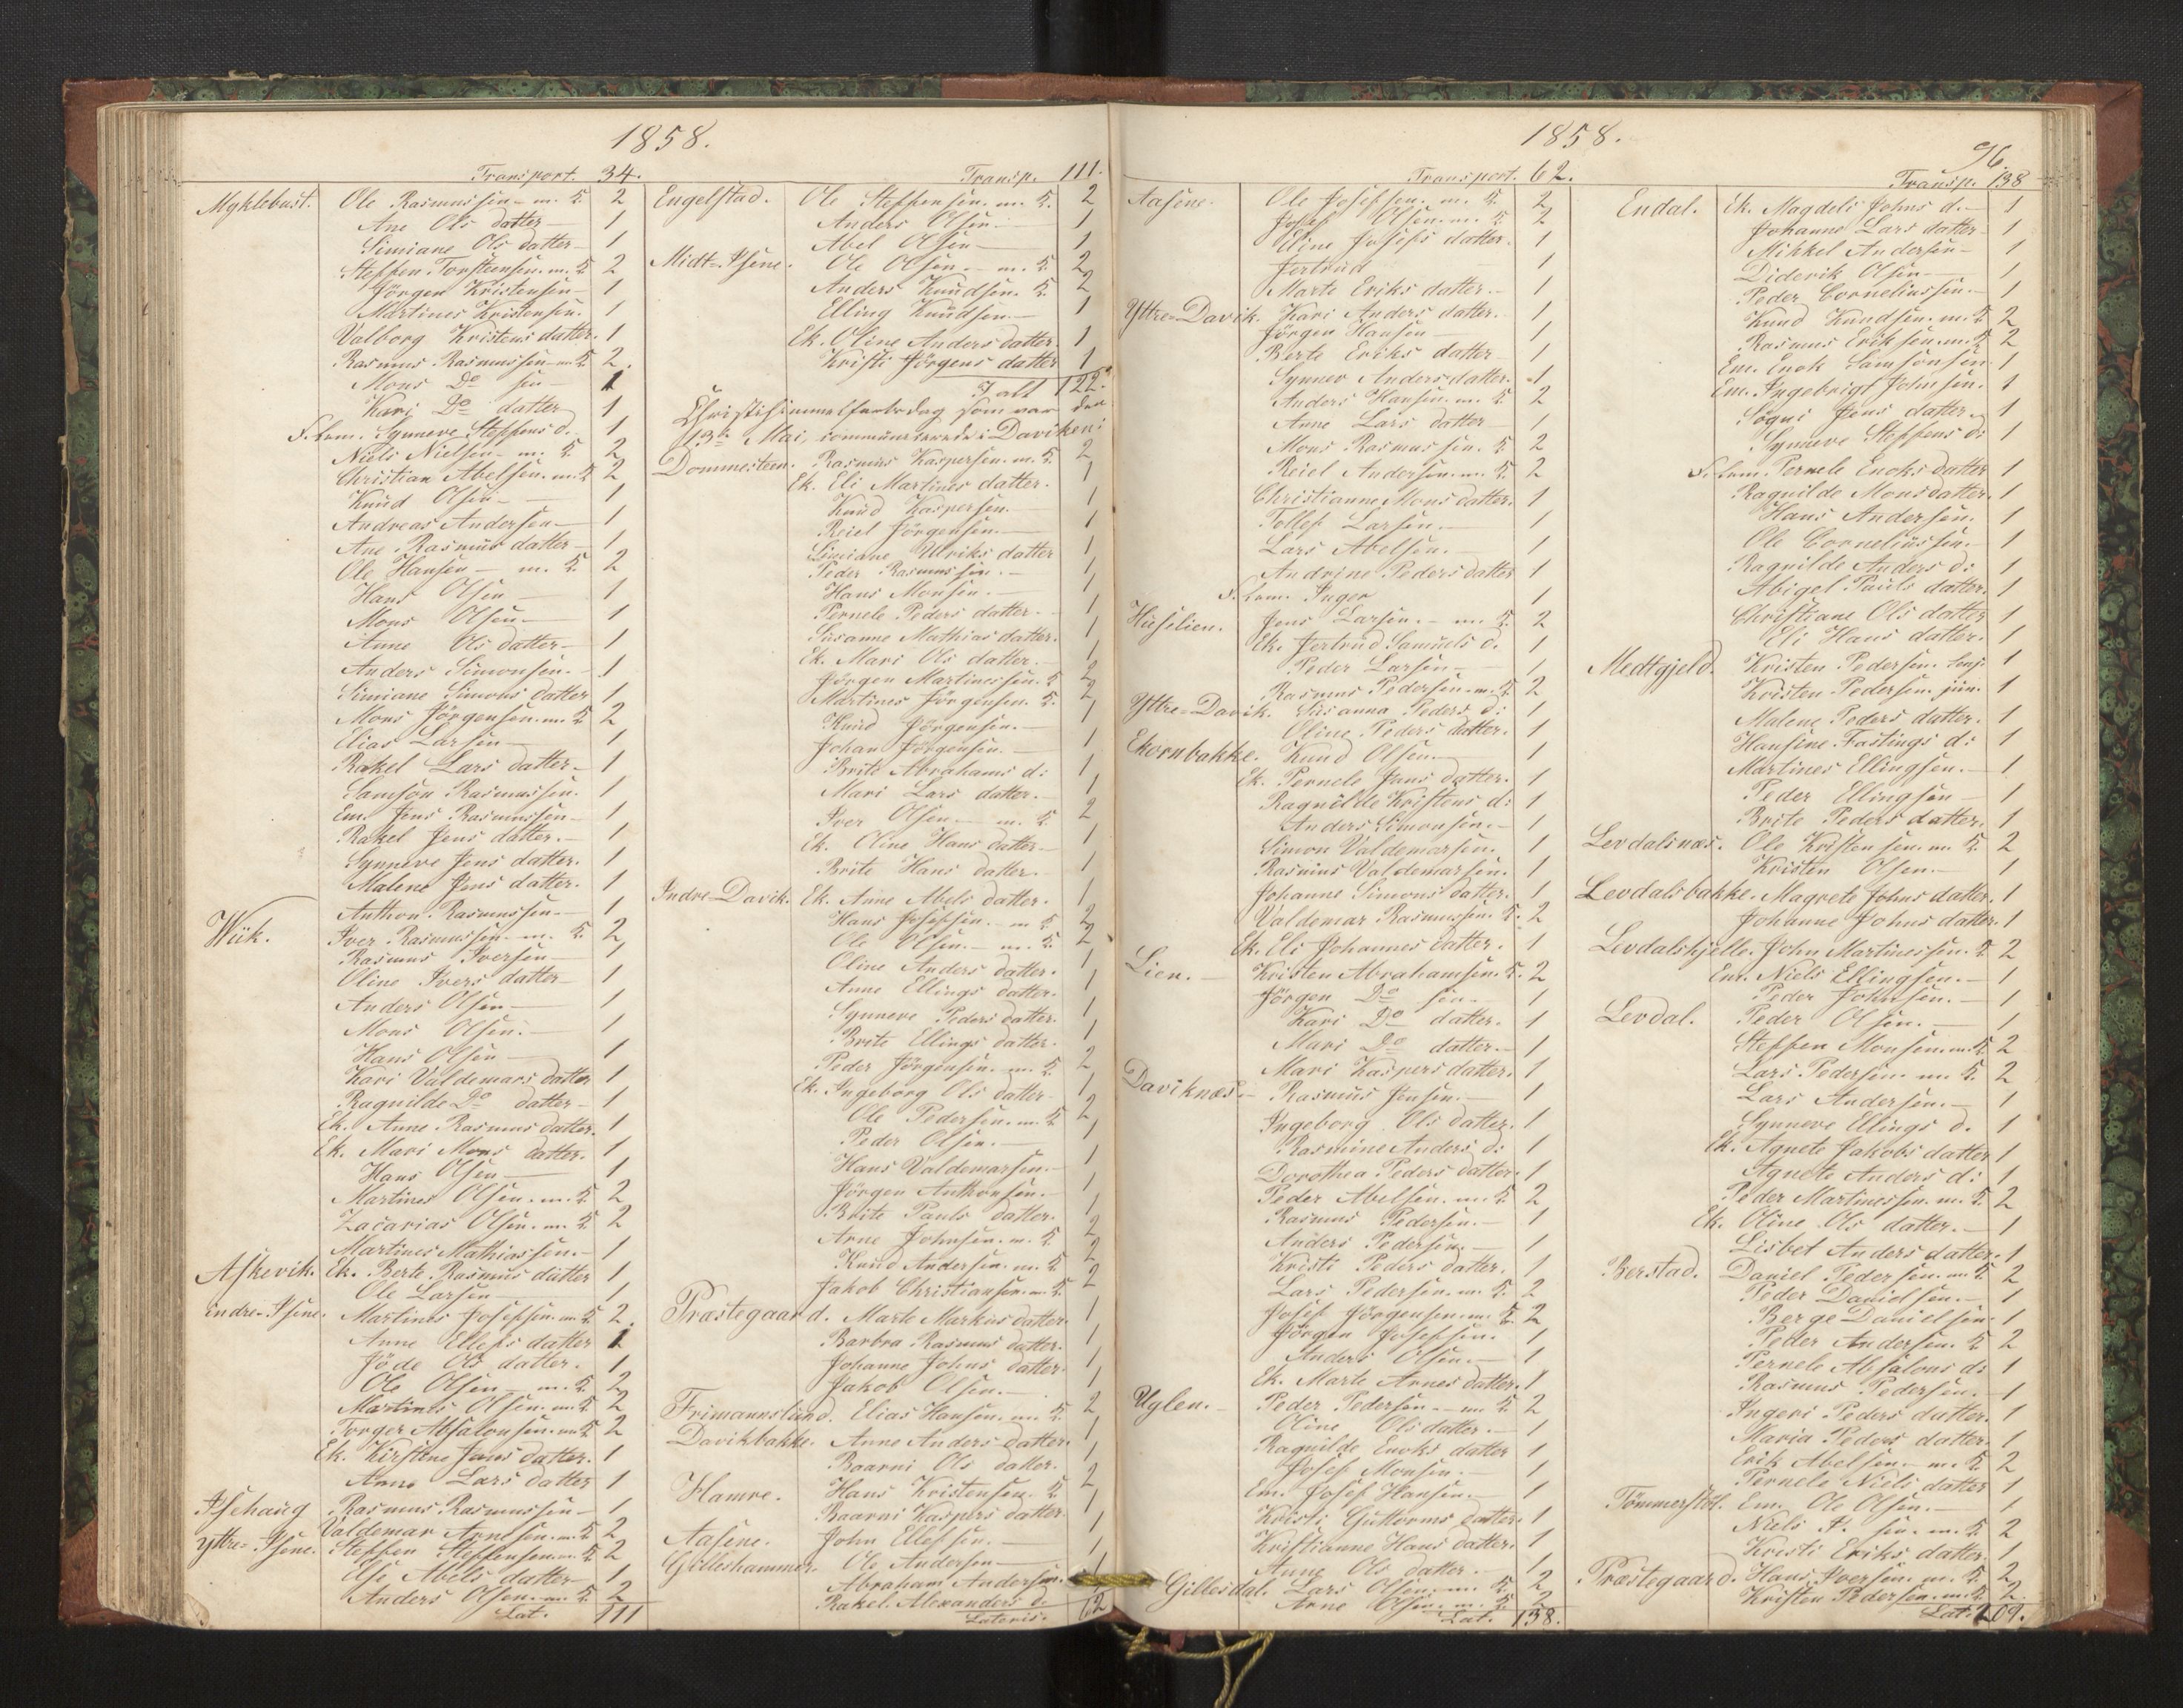 1858.
Transport. 34.
Myklebust. Ole Rasmussen m. K. 2
Ane Ols datter 1
Simiane Ols datter 1
Steffen Torsteensen. m. K. 2
Jörgen Kristensen 1
Martines Kristensen. 1
Valborg Kristens datter. 1
Rasmus Rasmussen m. K. 2.
Mons Do sen 1
Kari Do datter 1
Synneve Steffens d. 1
Niels Nielsen m. K. 2
Christian Abelsen. m. K. 2
Knud Olsen 1
Andreas Andersen 1
Ane Rasmus datter 1
Ole Hansen m. K. 2
Hans Olsen 1
Mons Olsen 1
Anne Ols datter 1
Anders Simonsen. 1
Simiane Simons datter 1
Mons Jörgensen. m. K. 2
Elias Larsen 1
Rakel Lars datter 1
Samson Rasmussen. 1
Em. Jens Rasmussen 1
Rakel Jens datter. 1
Synneve Jens datter. 1
Malene Jens datter. 1
Anthon Rasmussen 1
Wiik. Iver Rasmussen. m. K. 2
Rasmus Iversen 1
Oline Ivers datter 1
Anders Olsen 1
Mons Olsen. 1
Hans Olsen 1
Kari Valdemars datter 1
Ragnilde Do datter 1
Ek. Anne Rasmus datter. 1
Ek. Mari Mons datter. 1
Hans Olsen 1
Martines Olsen. m. K. 2
Zacarias Olsen. m. K. 2
Martines Mathiassen. 1
Askevik. Ek. Berte Rasmus datter 1
Ole Larsen 1
indre-Isene. Martines Josefsen. m. K. 2.
Anne Ellefs datter 1
Jöde Ols datter. 1
Ole Olsen m. K. 2
Martines Olsen. m. K. 2
Torger Absalonsen. m. K. 2
Ek. Kirstine Jans datter. 1
Anne Lars datter 1
Isehaug Rasmus Rasmussen 1
Valdemar Arnesen. m. K. 2
yttre-Isene. Steffen Steffensen. m. K. 2
Else Abels datter 1
Anders Olsen. m. K. 2
Lat. 111
Transp. 111.
Engelstad. Ole Steffensen. m. K. 2
Anders Olsen. 1
Abel Olsen 1
Midt-Isene. Ole Olsen. m. K. 2
Anders Knudsen. K. 2
Elling Knudsen. 1
Ek. Oline Anders datter 1
Kristi Jörgens datter 1
I alt 122.
Christihimmelfartsdag som var den
13de Mai, communicerede i Daviken:
Dommesteen. Rasmus Kaspersen. m. K. 2
Ek. Eli Martines datter. 1
Knud Kaspersen. 1
Reiel Jörgensen. 1
Simiane Ulriks datter 1
Peder Rasmussen. 1
Hans Monsen. 1
Pernele Peders datter. 1
Susanne Mathias datter. 1
Ek. Mari Ols datter. 1
Jörgen Martinessen. K. 2
Martines Jörgensen. K. 2
Knud Jörgensen. 1
Johan Jörgensen. 1
Brite Abrahams d: 1
Mari Lars datter. 1
Iver Olsen m. K. 2
Ek. Oline Hans datter. 1
Brite Hans datter. 1
Indre-Davik. Ek. Anne Abels datter. 1
Hans Josefsen. m. K. 2
Ole Olsen. m. K. 2
Oline Anders datter. 1
Anne Ellings datter. 1
Synneve Peders datter. 1
Brite Ellings datter. 1
Peder Jörgensen. m. K. 2
Ek. Ingeborg Ols datter 1
Ole Pedersen. m. K. 2
Peder Olsen. 1
Hans Valdemarsen. 1
Jörgen Anthonsen. 1
Brite Pauls datter. 1
Arne Johnsen. m. K. 2
Knud Andersen. m. K. 2
Jakob Christiansen. m. K. 2
Præstegaard. Marte Markus datter. 1
Barbra Rasmus datter. 1
Johanne Johns datter. 1
Jakob Olsen. 1
Frimannslund. Elias Hansen. m. K. 2
Davikbakke. Anne Anders datter. 1
Baarni Ols datter. 1
Hamre. Hans Kristensen. K. 2
Baarni Kaspers datter. 1
Aasene. John Ellefsen. 1
Gilleshammer. Ole Andersen 1
Abraham Andersen. 1
Rakel Alexanders d. 1
Lateris. 62
1858.
96.
Transport. 62.
Aasene. Ole Josefsen. m. K. 2
Josef Olsen. m. K. 2
Eline Josefs datter. 1
Jertrud 1
Marte Eriks datter. 1
Yttre-Davik. Kari Anders datter. 1
Jörgen Hansen 1
Berte Eriks datter 1
Synnev Anders datter. 1
Anders Hansen. m. K. 2
Anne Lars datter 1
Mons Rasmussen. K. 2
Reiel Andersen. m. K. 2
Christianne Mons datter. 1
Tollef Larsen. 1
Lars Abelsen. 1
Andrine Peders datter 1
Inger 1
Huselien. Jens Larsen. m. K. 2
Ek. Jertrud Samuels d. 1
Peder Larsen 1
Rasmus Pedersen. m. K. 2
Yttre-Davik. Susanna Peders d: 1
Oline Peders datter. 1
Ekornbakke. Knud Olsen. 1
Ek. Pernele Jans datter. 1
Ragnilde Kristens d: 1
Anders Simonsen. 1
Simon Valdemarsen. 1
Rasmus Valdemarsen. 1
Johanne Simons datter. 1
Valdemar Rasmussen. K. 2
Ek. Eli Johannes datter. 1
Lien. Kristen Abrahamsen. K. 2
Jörgen Do sen. 1
Kari Do datter. 1
Mari Do datter. 1
Mari Kaspers datter. 1
Daviknæs. Rasmus Jensen. 1
Ingeborg Ols datter. 1
Rasmine Anders d: 1
Dorothea Peders datter. 1
Peder Abelsen. m. K. 2
Rasmus Pedersen. 1
Anders Pedersen. 1
Kristi Peders datter. 1
Lars Pedersen. m. K. 2
Josef Jörgensen. m. K. 2
Jörgen Josefsen. 1
Anders Olsen. 1
Ek. Marte Arnes datter. 1
Uglen. Peder Pedersen m. K. 2
Oline Ols datter. 1
Ragnilde Enoks datter 1
Josef Monsen. 1
Em. Josef Hansen. 1
Kristi Guttorms datter. 1
Kristianne Hans datter. 1
Anne Ols datter. 1
Gillesdal. Lars Olsen. m. K. 2
Arne Olsen. m. K. 2
Lat. 138.
Transp. 138
Endal. Ek. Magdeli Johns d. 1
Johanne Lars datter 1
Mikkel Andersen 1
Diderik Olsen 1
Peder Corneliussen. 1
Knud Knudsen. m. K. 2
Rasmus Eriksen. m. K. 2
Em. Enok Samsonsen. 1
Em. Ingebrigt Johnsen. 1
Sögni Jens datter. 1
Synneve Steffens d: 1
Pernele Enoks datter 1
Ragnilde Mons datter. 1
Hans Andersen. 1
Ole Corneliussen. 1
Ragnilde Anders d: 1
Abigel Pauls datter. 1
Christiane Ols datter 1
Eli Hans datter. 1
Medtgjeld. Kristen Pedersen. Senj. 1
Kristen Pedersen. jun. 1
Malene Peders datter. 1
Hansine Fastings d: 1
Martines Ellingsen. 1
Peder Ellingsen 1
Brite Peders datter. 1
Levdalsnæs. Ole Kristensen. m. K. 2
Kristen Olsen. 1
Levdalsbakke. Magrete Johns datter. 1
Johanne Johns datter. 1
Levdalshjelle. John Martinessen. K. 2
Em. Niels Ellingsen. 1
Peder Johnsen. 1
Levdal. Peder Olsen. 1
Steffen Monsen. m. K. 2
Lars Pedersen. m. K. 2
Lars Andersen. 1
Synneve Ellings d. 1
Ek. Agnete Jakobs datter 1
Agnete Anders d: 1
Peder Martinessen. m. K. 2
Ek. Oline Ols datter. 1
Lisbet Anders datter. 1
Berstad. Daniel Pedersen. m. K. 2
Peder Danielsen. 1
Berge Danielsen. 1
Peder Andersen. K. 2
Pernele Absalons d: 1
Rasmus Pedersen. 1
Ingeri Peders datter. 1
Maria Peders datter. 1
Erik Abelsen. m. K. 2
Pernele Niels datter 1
Tömmerstöl. Em. Ole Olsen. 1
Niels P. sen. m. K. 2
Kristi Eriks datter. 1
Præstegaard. Hans Iversen. m. K. 2
Kristen Pedersen. m. K. 2.
Lat. 209.